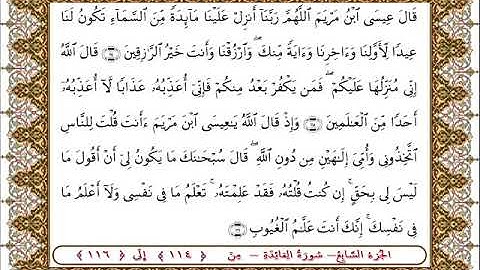 قَالَ عِيسَى ٱبْنُ مَرْيَمَ ٱللَّهُمَّ رَبَّنَآ أَنزِلْ عَلَيْنَا مَآئِدَةً مِّنَ ٱلسَّمَآءِ تَكُونُ لَنَا
عِيدًا لِّأَوَّلِنَا وَءَاخِرِنَا وَءَايَةً مِّنكَ ۖ وَٱرْزُقْنَا وَأَنتَ خَيْرُ ٱلرَّٰزِقِينَ ۝١١٤ قَالَ ٱللَّهُ
إِنِّى مُنَزِّلُهَا عَلَيْكُمْ ۖ فَمَن يَكْفُرْ بَعْدُ مِنكُمْ فَإِنِّىٓ أُعَذِّبُهُۥ عَذَابًا لَّآ أُعَذِّبُهُۥٓ
أَحَدًا مِّنَ ٱلْعَٰلَمِينَ ۝١١٥ وَإِذْ قَالَ ٱللَّهُ يَٰعِيسَى ٱبْنَ مَرْيَمَ ءَأَنتَ قُلْتَ لِلنَّاسِ
ٱتَّخِذُونِى وَأُمِّىَ إِلَٰهَيْنِ مِن دُونِ ٱللَّهِ ۖ قَالَ سُبْحَٰنَكَ مَا يَكُونُ لِىٓ أَنْ أَقُولَ مَا
لَيْسَ لِى بِحَقٍّ ۚ إِن كُنتُ قُلْتُهُۥ فَقَدْ عَلِمْتَهُۥ ۚ تَعْلَمُ مَا فِى نَفْسِى وَلَآ أَعْلَمُ مَا
فِى نَفْسِكَ ۚ إِنَّكَ أَنتَ عَلَّٰمُ ٱلْغُيُوبِ ۝١١٦
الجزء السابع – سورة المائدة – من ﴿ ١١٤ ﴾ إلى ﴿ ١١٦ ﴾